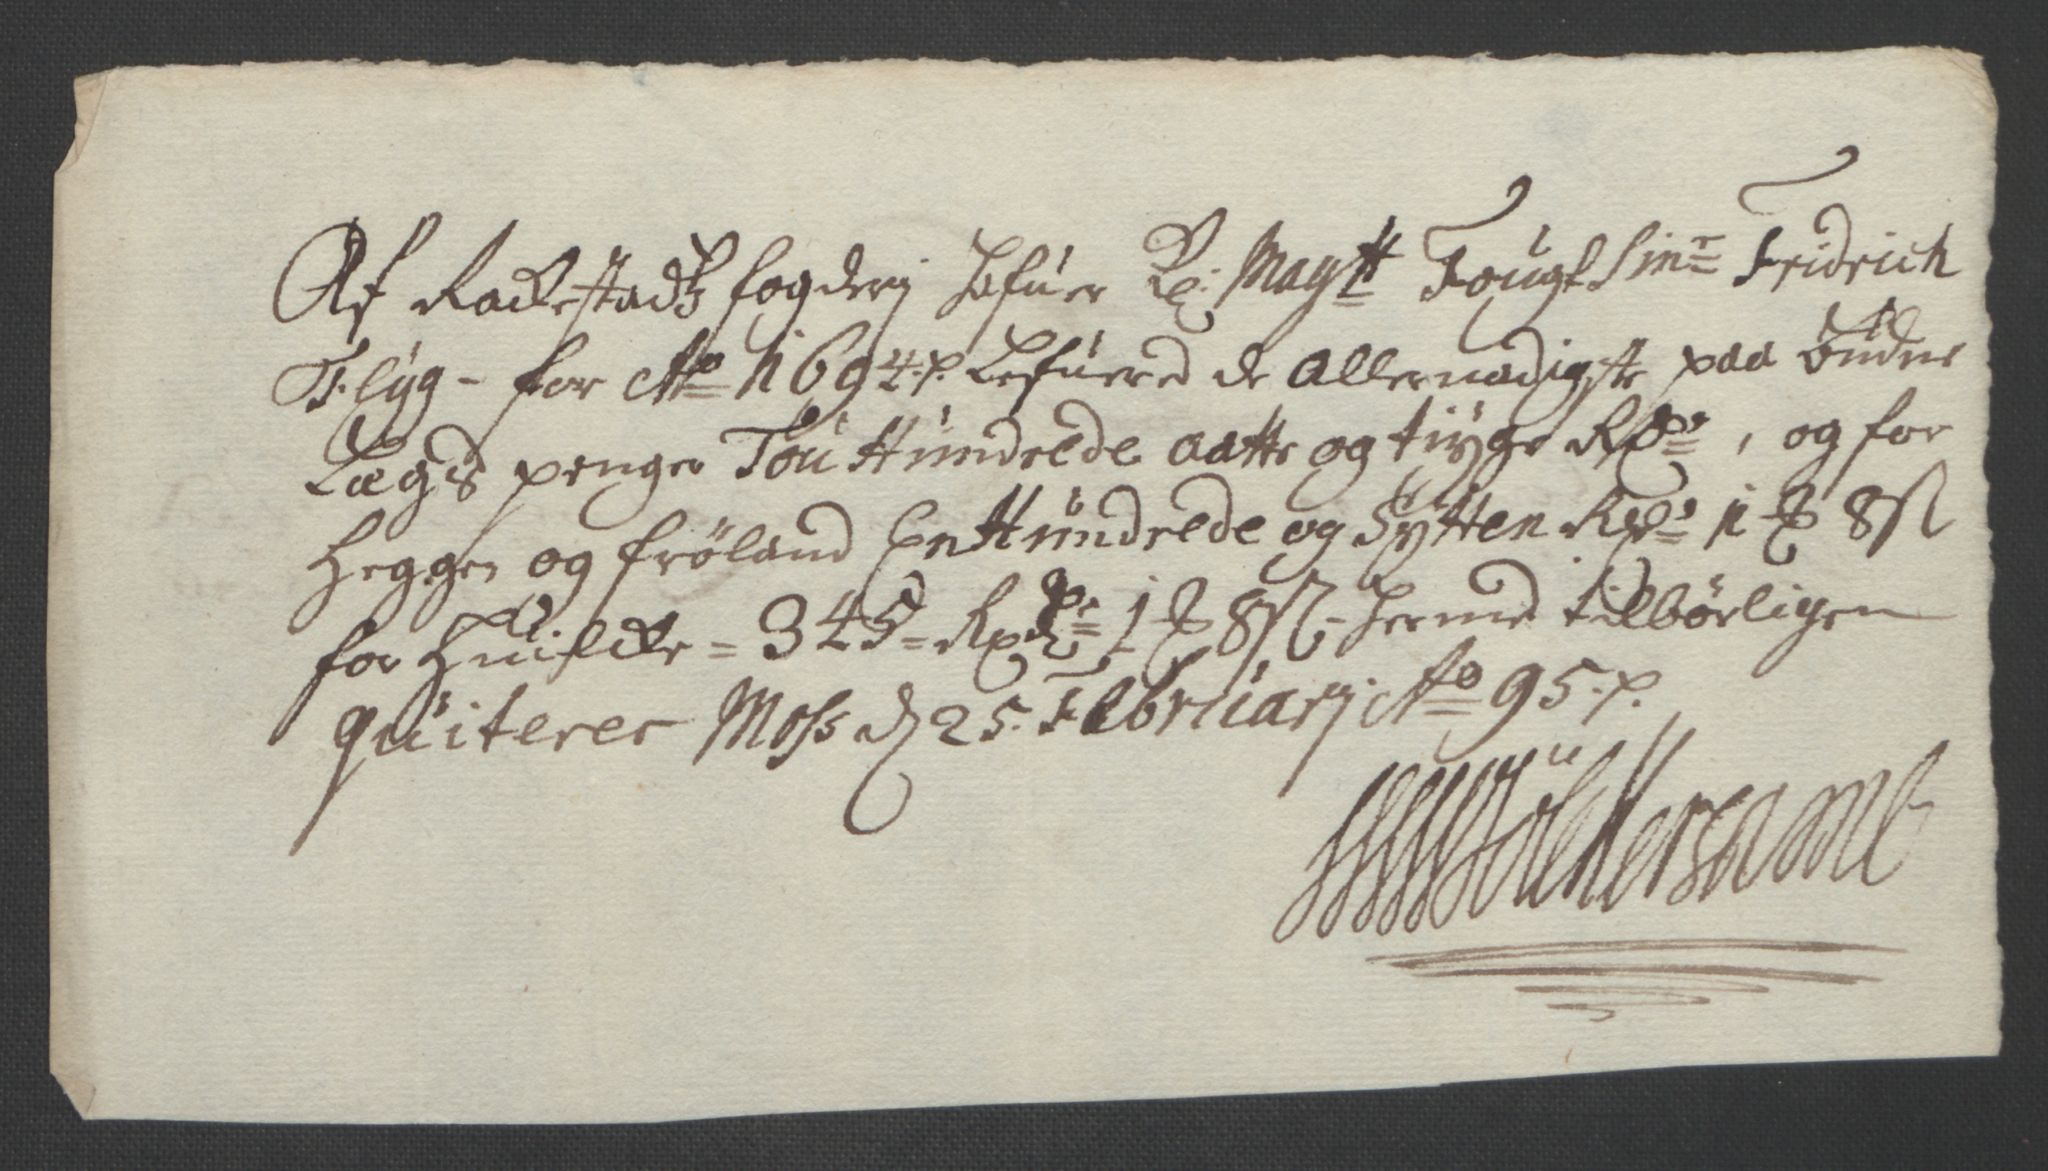 Af Rackestadz fogderj hafuer Kg: Maytt Fougt Sinr Fridrich
Flÿg - for Ao 1694. p. Lefuered de allernadigste paa buden
Lægs penger Tou Hundrede aatte og tiyge Rdr, og for
Heggen og frøland En Hundrede og Sytten Rdr 1 ₰ 8 s
for Huilcke = 345 = Rdr 1 ₰ 8 s - herme tilbørligen
quiterer Moss d 25. Februarj Ao 95. p.